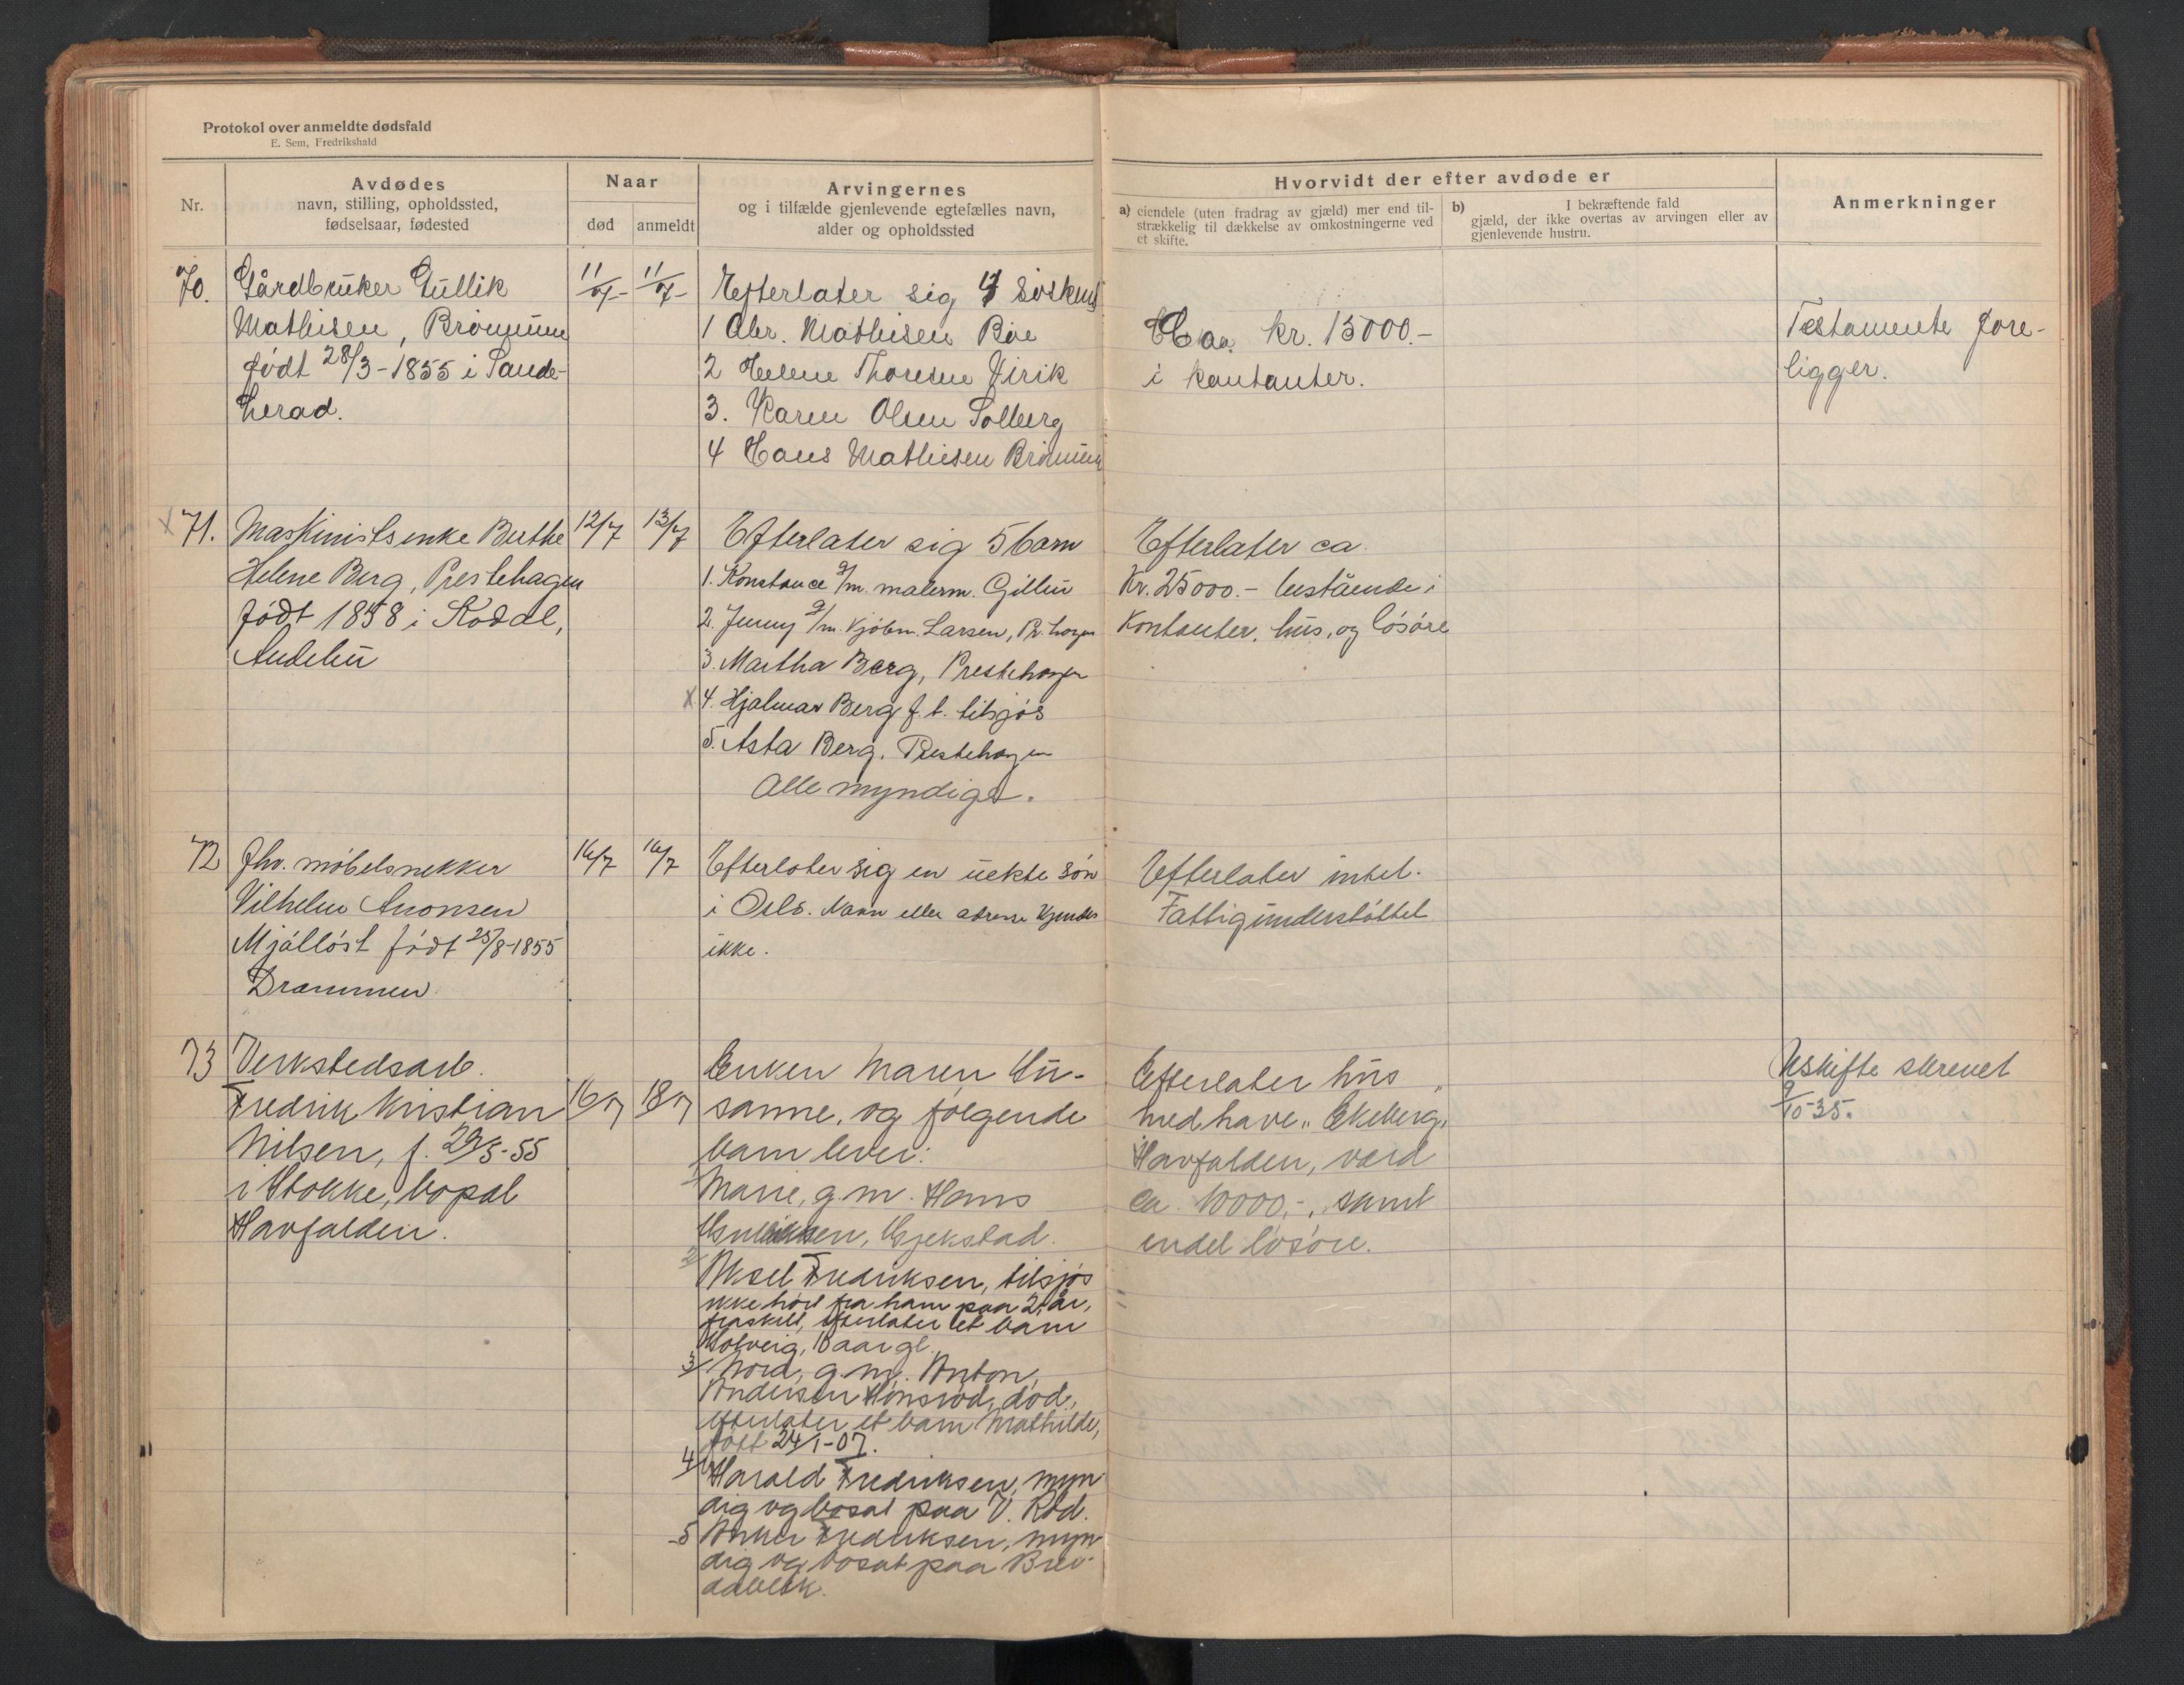 Protokol over anmeldte dødsfald
E. Sem, Fredrikshald
Nr.
Avdødes
navn, stilling, opholdssted,
fødselsaar, fødested
Naar
død
anmeldt
Arvingernes
og i tilfælde gjenlevende egtefælles navn,
alder og opholdssted
Hvorvidt der efter avdøde er
a) eiendele (uten fradrag av gjæld) mer end til-
strækkelig til dækkelse av omkostningerne ved
et skifte.
b) I bekræftende fald
gjæld, der ikke overtas av arvingen eller av
gjenlevende hustru.
Anmerkninger
70.
Gårdbruker Gullik
Mathisen, Brömunn
født 28/3-1855 i Sande-
herad.
11/7- 11/7-
Efterlater sig 4 søsken
1 Abr. Mathisen Bøe
2 Helene Thoresen Virik
3. Karen Olsen Solberg
4 Hans Mathisen Brömunn
Ca. kr. 15000.-
i kontanter.
Testamente fore-
ligger.
71.
Maskinistenke Berthe
Helene Berg, Prestehagen
født 1858 i Kodal,
Andebu
12/7 13/7
Efterlater sig 5 barn
1. Konstance g/m. malerm. Gillin
2. Jenny g/m. kjøbm. Larsen, Pr. hagen
3. Martha Berg, Prestehagen
x 4. Hjalmar Berg f. t. tilsjøs
5. Asta Berg, Prestehagen
Alle myndige.
Efterlater ca.
Kr. 25000.- bestående i
Kontanter, hus, og løsøre
72
Fhv. møbelsnekker
Vilhelm Aronsen
Mjølløst født 25/8-1855
Drammen
16/7 16/7
Efterlater sig en uekte søn
i Oslo. Navn eller adresse kjendes
ikke.
Efterlater intet.
Fattigunderstøttet
73
Verkstedsarb.
Fredrik Kristian
Nilsen, f. 29/5-55
i Stokke, bopæl
Havfalden.
16/7 18/7
Enken Maren Su-
sanne, og følgende
barn lever:
Marie, g.m. Hans
Henriksen, Gjekstad.
2/ Aksel Fredriksen, tilsjøs
ikke hørt fra ham paa 2 år,
fraskilt, efterlater et barn
Solveig, 13 aar gl.
3/ Nora, g.m. Anton
Andersen Hønsrød, død,
efterlater et barn Mathilde,
født 24/1-07.
4/ Harald Fredriksen, myn-
dig og bosat paa V. Rød.
5 Anker Fredriksen, myn-
dig og bosat paa Brei-
dablik.
Efterlater hus
med have "Ekeberg"
Havfalden, værd
ca. 10000,-, samt
endel løsøre.
Uskifte skrevet
9/10-35.